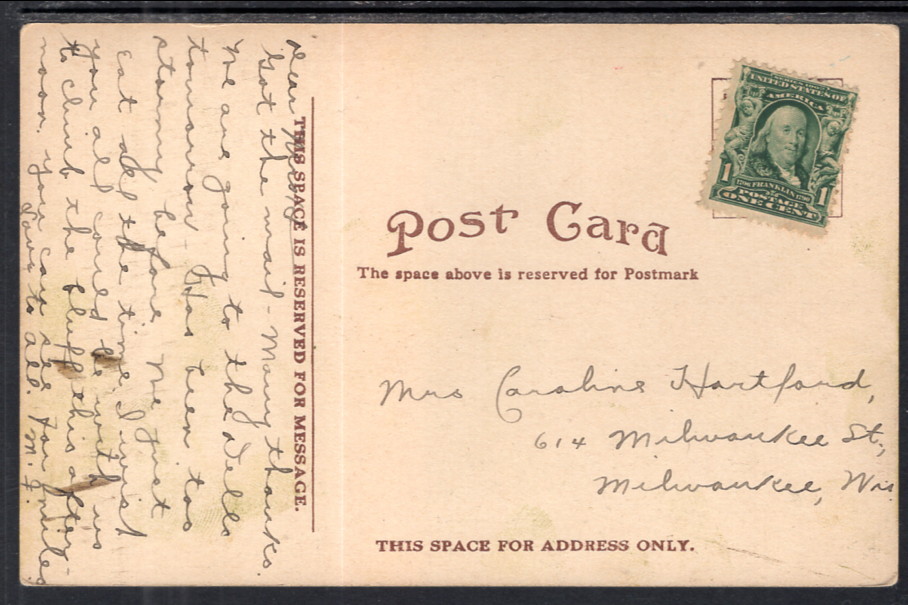 Dear
Got the mail - Many thanks.
We are going to the Dells
tomorrow - Has been too
stormy before. We just
eat all the time. I wish
you all could be with us
to climb the bluff this after-
noon. You can see for miles
Love to all. M. F.
THIS SPACE IS RESERVED FOR MESSAGE.
UNITED STATES OF
AMERICA
1 1
1706 FRANKLIN 1790
POSTAGE
ONE CENT
Post Card
The space above is reserved for Postmark
Mrs Caroline Hartford,
614 Milwaukee St,
Milwaukee, Wis
THIS SPACE FOR ADDRESS ONLY.